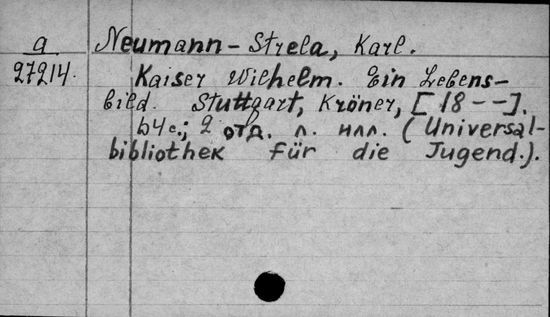 a
27214.
Neumann-Strela, Karl.
Kaiser Wilhelm. Ein Lebens-
bild. Stuttgart, Kröner, [18--].
64 с.; 2 отд. л. илл. (Universal-
bibliothek für die Jugend.).